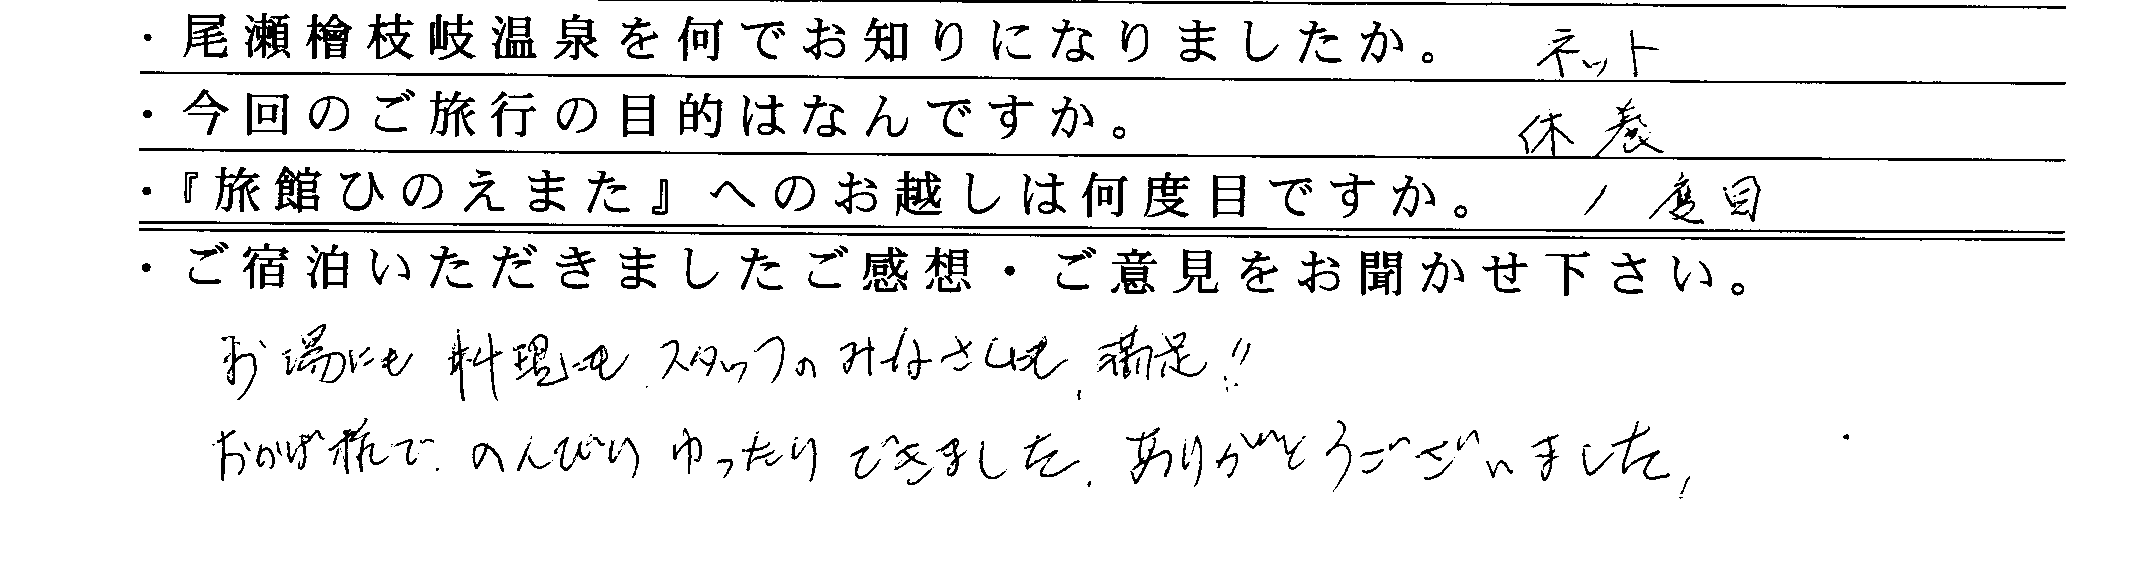 ・尾瀬檜枝岐温泉を何でお知りになりましたか。 ネット
・今回のご旅行の目的はなんですか。 休養
・『旅館ひのえまた』へのお越しは何度目ですか。 1度目
・ご宿泊いただきましたご感想・ご意見をお聞かせ下さい。
お湯にも料理にも、スタッフのみなさんにも、満足!!
おかげ様で、のんびりゆったりできました。ありがとうございました。